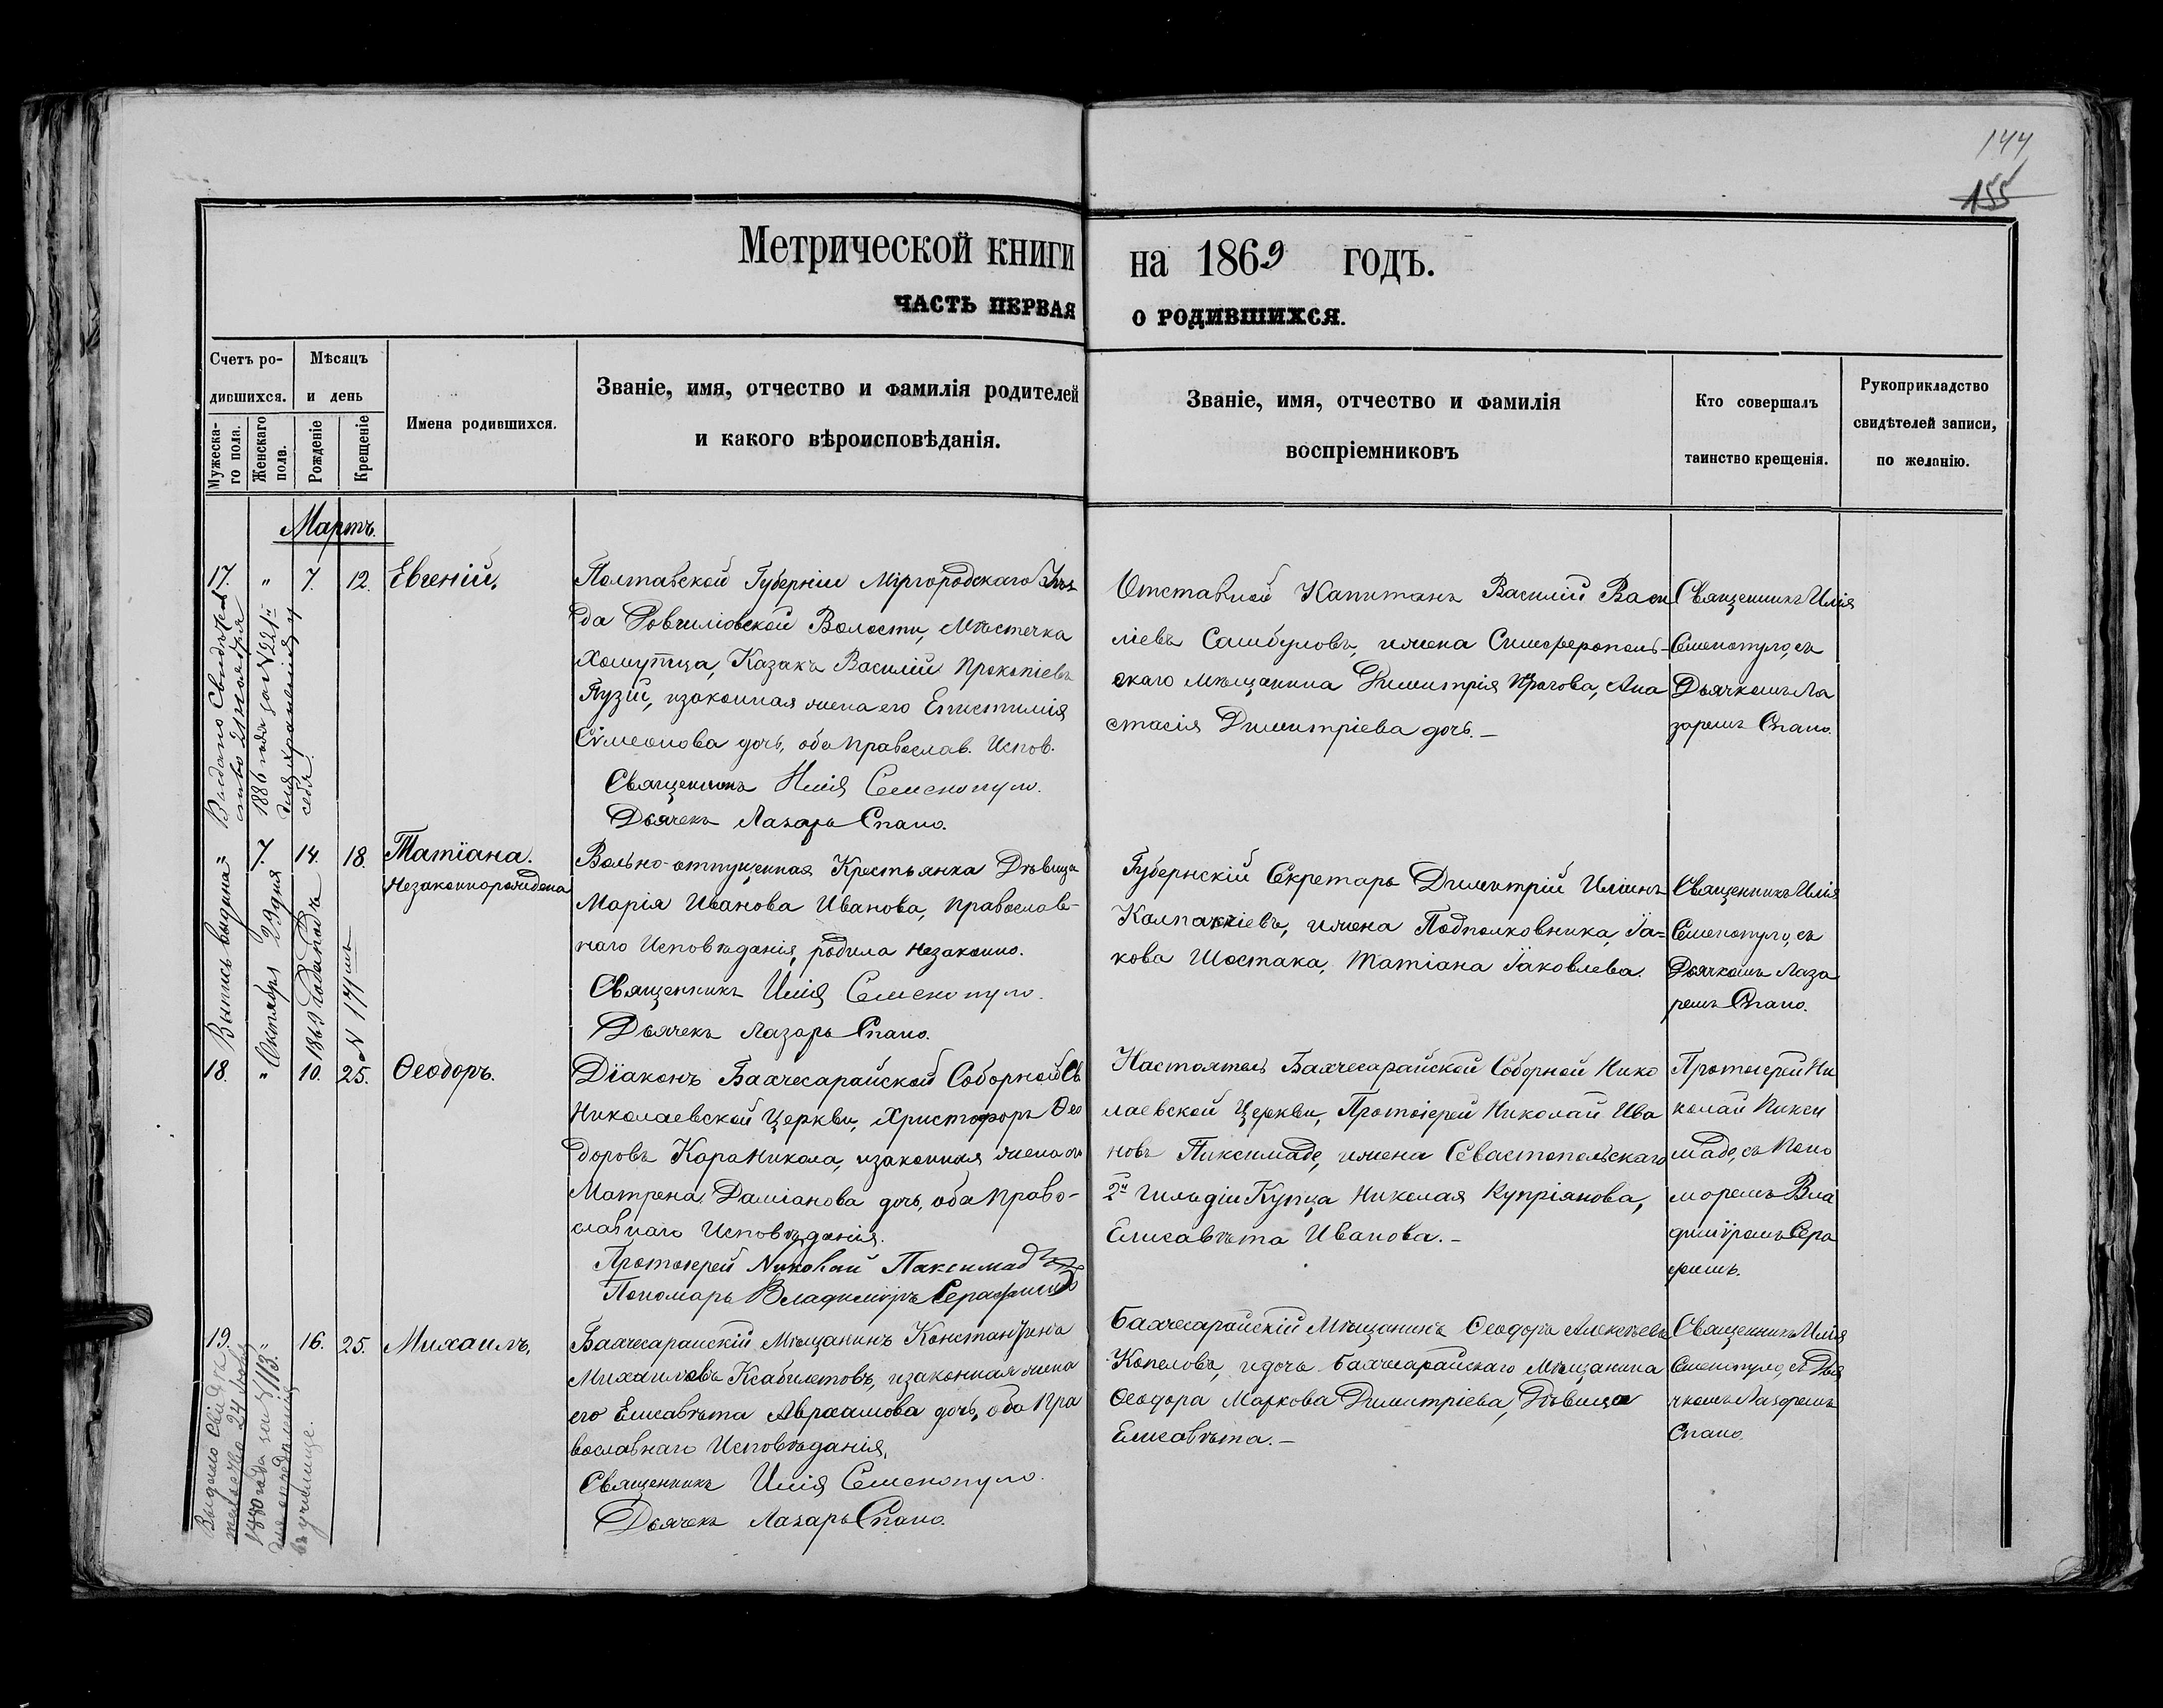 144
155
Метрической книги на 1869 годъ.
ЧАСТЬ ПЕРВАЯ О РОДИВШИХСЯ.
Счетъ ро-
дившихся.
Мѣсяцъ
и день
Мужеска-
го пола.
Женскаго
пола.
Рожденіе
Крещеніе
Имена родившихся.
Званіе, имя, отчество и фамилія родителей
и какого вѣроисповѣданія.
Званіе, имя, отчество и фамилія
воспріемниковъ
Кто совершалъ
таинство крещенія.
Рукоприкладство
свидѣтелей записи,
по желанію.
Мартъ.
17. " 7. 12. Евгеній.
Полтавской Губерніи Міргородскаго Уѣз
да Волости, Мѣстечка
Хомутца, Казакъ Василій Прокопіевъ
Пузій, изаконная жена его Епистимія
Сѵмеонова дочь, оба православ. Испов.
Священникъ Илія Семенопуло.
Дьячекъ Лазарь Спано.
Отставной Капитанъ Василій Васи
ліевъ Самбуловъ, ижена Симферополь-
скаго мѣщанина Димитрія Ана
стасія Димитріева дочь. –
Священникъ Илія
Семенопуло, съ
Дьячкомъ Ла
заремъ Спано.
Выдано Свидѣтель
ство
1886 года за №221м
для храненія у
себя.
" 7. 14. 18. Татіана.
Незаконнорождена
Вольно-отпущенная Крестьянка Дѣвица
Марія Иванова Иванова, православ-
наго Исповѣданія, родила незаконно.
Священникъ Илія Семенопуло.
Дьячекъ Лазарь Спано.
Губернскій Секретарь Димитрій Иліинъ
Колпакчіевъ, ижена Подполковника, Іа=
кова Шостака, Татіана Іаковлева.
Священникъ Илія
Семенопуло, съ
Дьячкомъ Лаза
ремъ Спано.
Выпись выдана
Октября 29 дня
1869 года
№ 171мъ
18. " 10. 25. Ѳеодоръ.
Діаконъ Бахчесарайской Соборной Св
Николаевской Церкви, Христофоръ Ѳео
доровъ Караникола, изаконная жена его
Матрена Даміанова дочь, оба право-
славнаго Исповѣданія.
Протоіерей Николай Паксимаде
Пономарь Владиміръ Серафимъ
Настоятель Бахчесарайской Соборной Нико
лаевской Церкви, Протоіерей Николай Ива
новъ Пиксимаде, ижена Севастопольскаго
2й Гильдіи Купца Николая Купріянова,
Елисавѣта Иванова. –
Протоіерей Ни
колай Пикси
маде, съ Поно
маремъ Вла
диміромъ Сера
фимъ.
19. " 16. 25. Михаилъ.
Бахчесарайскій Мѣщанинъ Константинъ
Михаиловъ Ксабилетовъ, изаконная жена
его Елисавѣта Авраамова дочь, оба Пра
вославнаго Исповѣданія.
Священникъ Илія Семенопуло.
Дьячекъ Лазарь Спано.
Бахчесарайскій Мѣщанинъ Ѳеодоръ Алексѣевъ
Копеловъ, идочь Бахчесарайскаго Мѣщанина
Ѳеодора Маркова Димитріева, Дѣвица
Елисавѣта. –
Священникъ Илія
Семенопуло, съ Дья
чкомъ Лазаремъ
Спано.
Выдано Свидѣ
тельство 24
1880 года за №113.
для опредѣленія
въ училище.